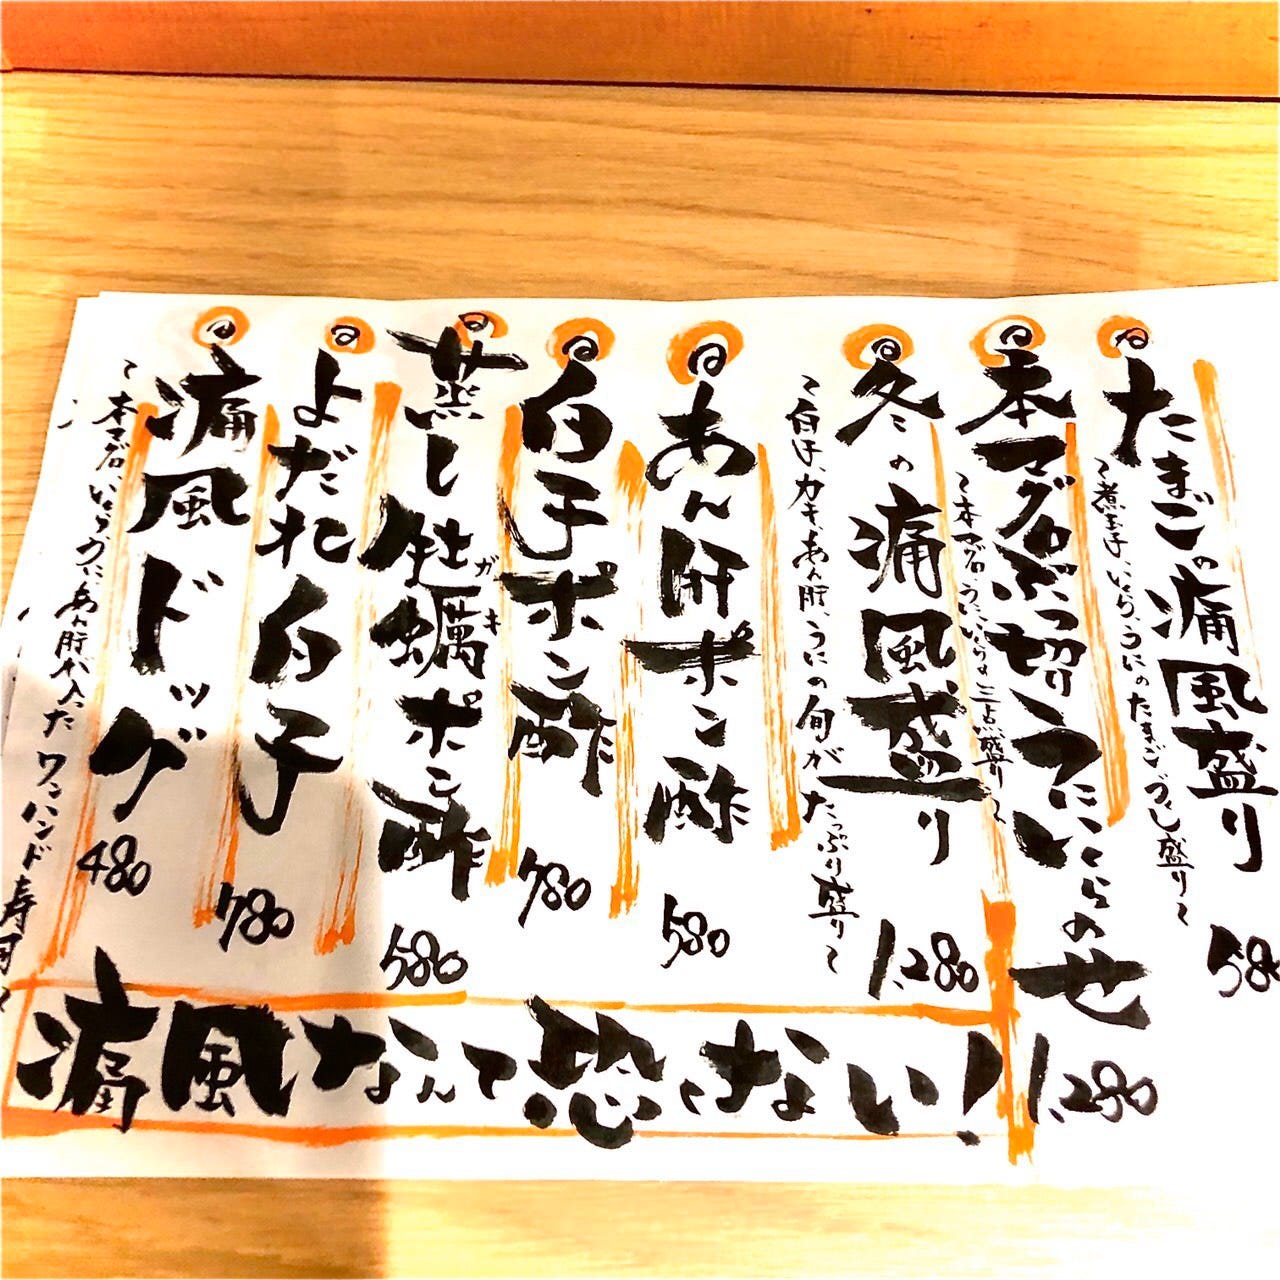 たまごの痛風盛り
〜煮玉子、いくら、うにのたまごづくし盛り〜
580
本マグロぶつ切りうにいくらのせ
〜本マグロ、うに、いくらの三点盛り〜
1,280
冬の痛風盛り
〜白子、カキ、あん肝、うにの旬がたっぷり盛り〜
1,280
あん肝ポン酢
580
白子ポン酢
780
蒸し牡蠣ポン酢
ガキ
580
よだれ白子
780
痛風ドッグ
〜本マグロ、いくら、カニ、あん肝が入ったワンハンド寿司〜
480
痛風なんて恐くない!